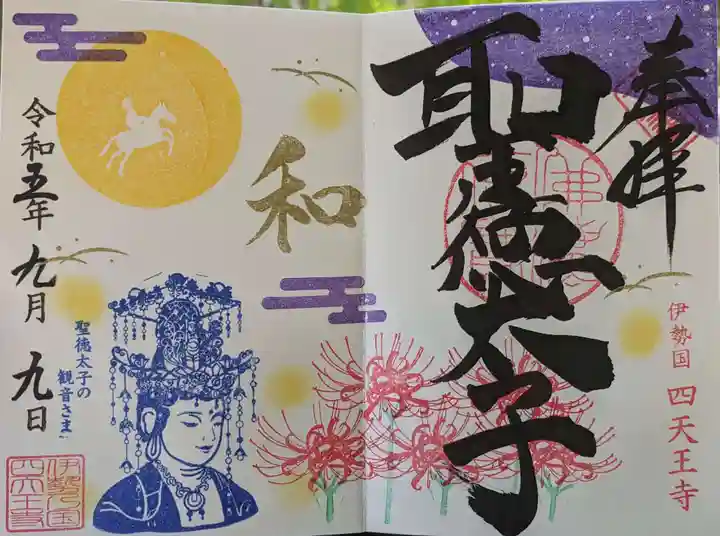 奉拝
聖徳太子
伊勢国 四天王寺
和
令和五年九月九日
聖徳太子の
観音さま
伊勢国
四天王寺